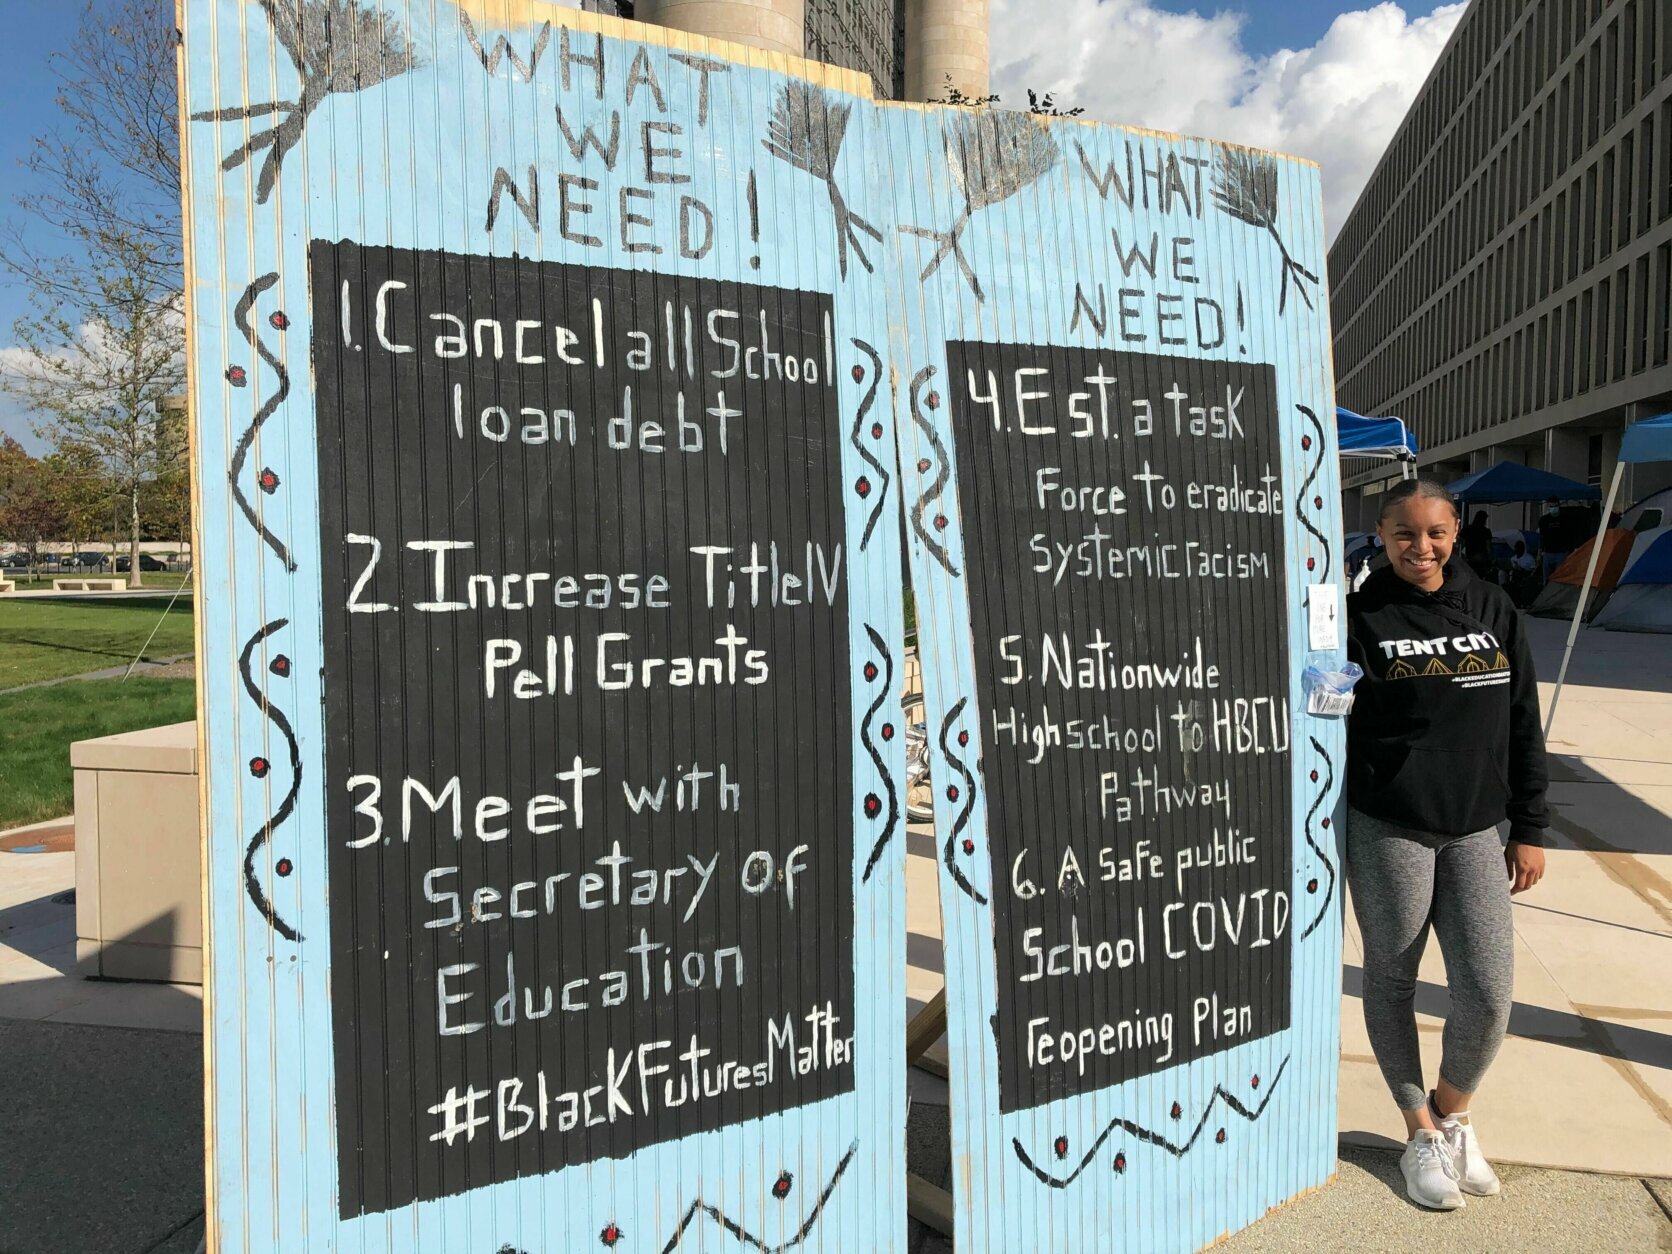 WHAT
WE
NEED!
1. Cancel all School
loan debt
2. Increase Title IV
Pell Grants
3. Meet with
Secretary of
Education
#BlackFuturesMatter
WHAT
WE
NEED!
4. Est. a task
Force to eradicate
systemic racism
5. Nationwide
High school to HBCU
Pathway
6. A safe public
School COVID
reopening Plan
TENT CITY
#BLACKEDUCATIONMATTERS
#BLACKFUTURESMATTER